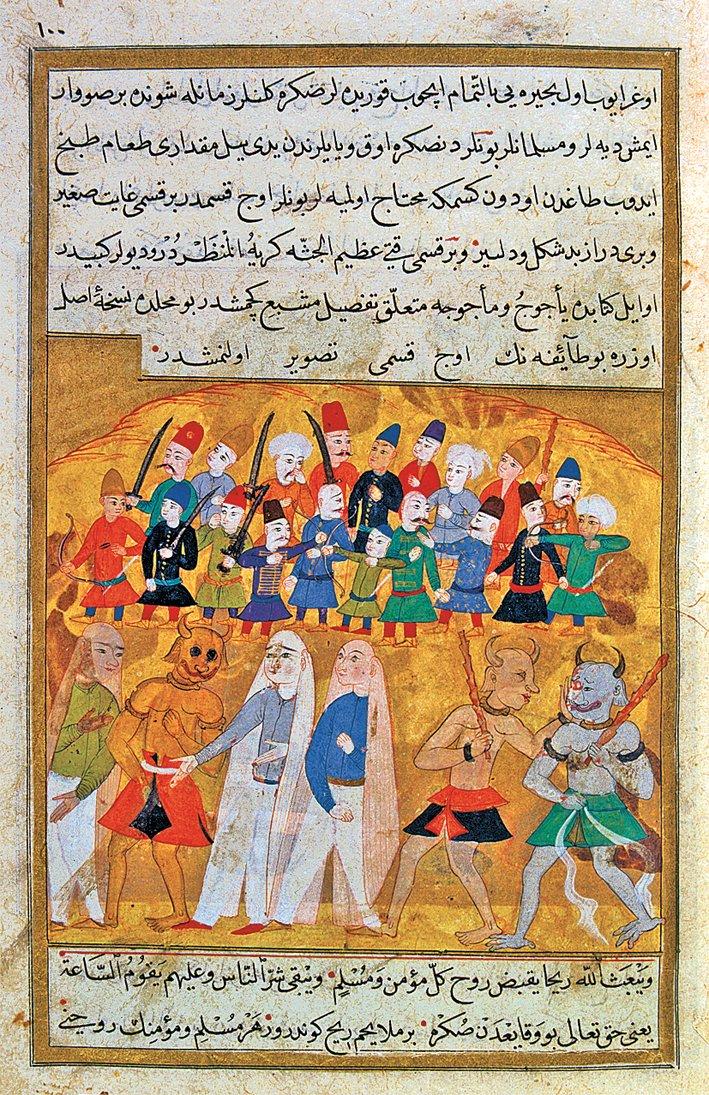 ١٠٠
اوغرايوب اول بحيره يى بالتّمام ايچوب قوريده لر ضكره كلنلر زمانله شونده بر صو وار
ايمش ديه لر و مسلمانلر بونلردنصكره اوق و يايلرندن يدى ييل مقدارى طعام طبخ
ايدوب طاغدن اودون كسمكه محتاج اولميه لر بونلر اوج قسمدر بر قسمى غايت صغير
و برى دراز بد شكل و دلير و بر قسمى قتى عظيم الجثّه كريه المنظر در و ديولر كبيدر
اوايل كتابده يأجوج و مأجوجه متعلّق تفصيل مشبع كچمشدر بو محلده نسخهٔ اصل
اوزره بو طآئفه نك اوج قسمى تصوير اولنمشدر
ويبعث الله ريحا يقبض روح كلّ مؤمن ومُسْلِمٍ ويبقى شرّ النّاس وعليهم يَقُومُ السّاعة
يعنى حق تعالى بو وقايعدن صُكره بر ملايم ريح كوندرور هر مسلم و مؤمنك روحنى